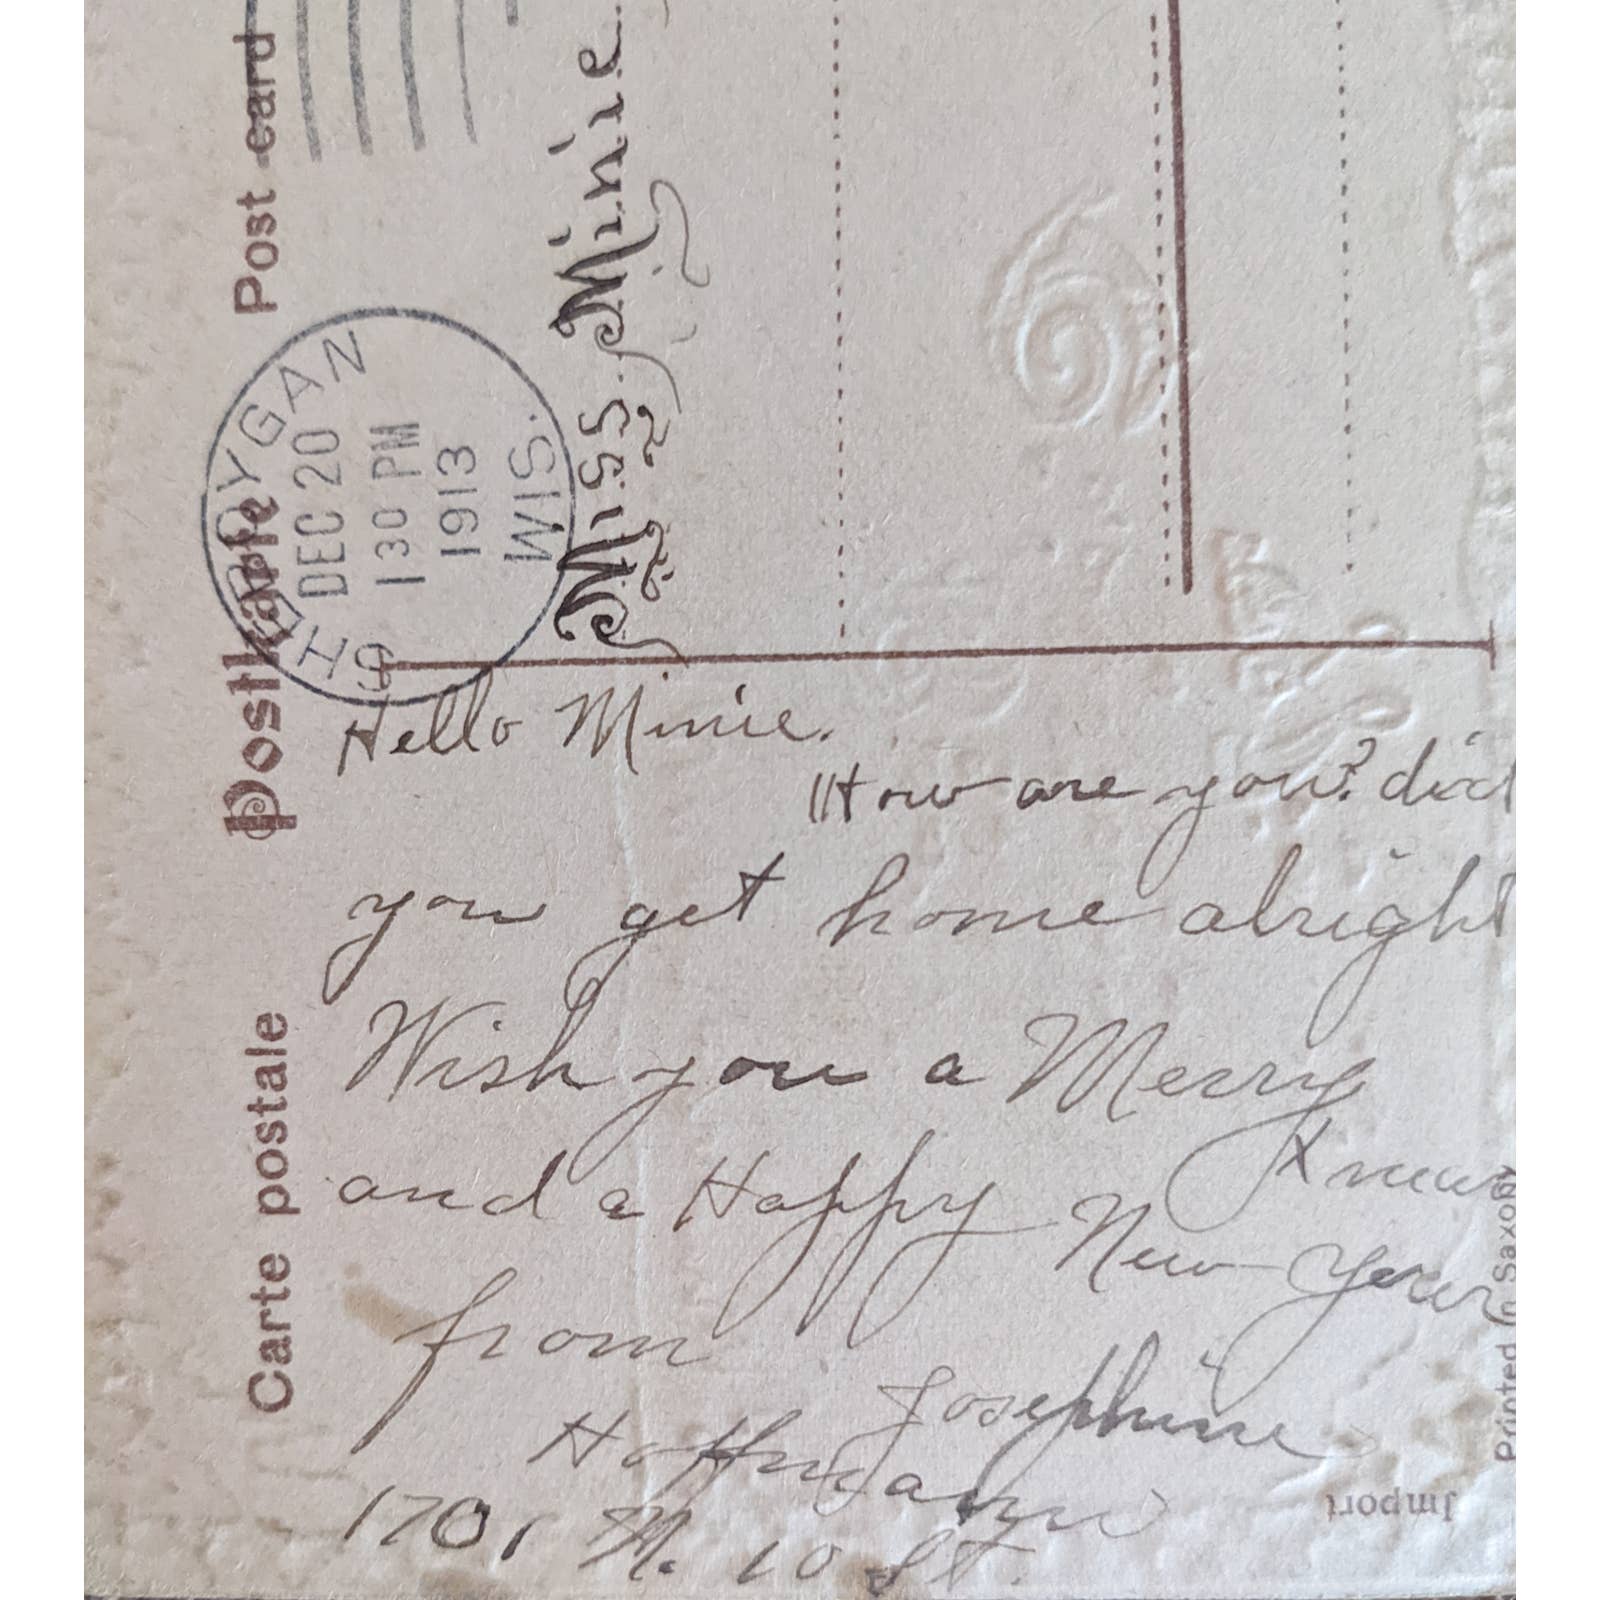 Carte postale Postkarte Post card
SHEBOYGAN
DEC 20
1 30 PM
1913
WIS.
Miss. Minie
Hello Minie.
How are you? did
you get home alright
Wish you a Merry
Xmas
and a Happy New Year
from
Josephine
Hoffmann
1701 N. 10 St.
Import
Printed in Saxony